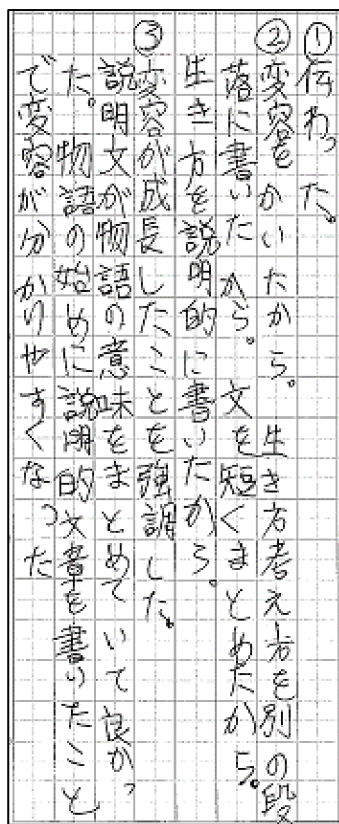 ①伝わった。
②変容をかいたから。生き方考え方を別の段
落に書いたから。文を短くまとめたから。
生き方を説明的に書いたから。
③変容が成長したことを強調した。
説明文が物語の意味をまとめていて良かっ
た。物語の始めに説明的文章を書いたこと
で変容が分かりやすくなった